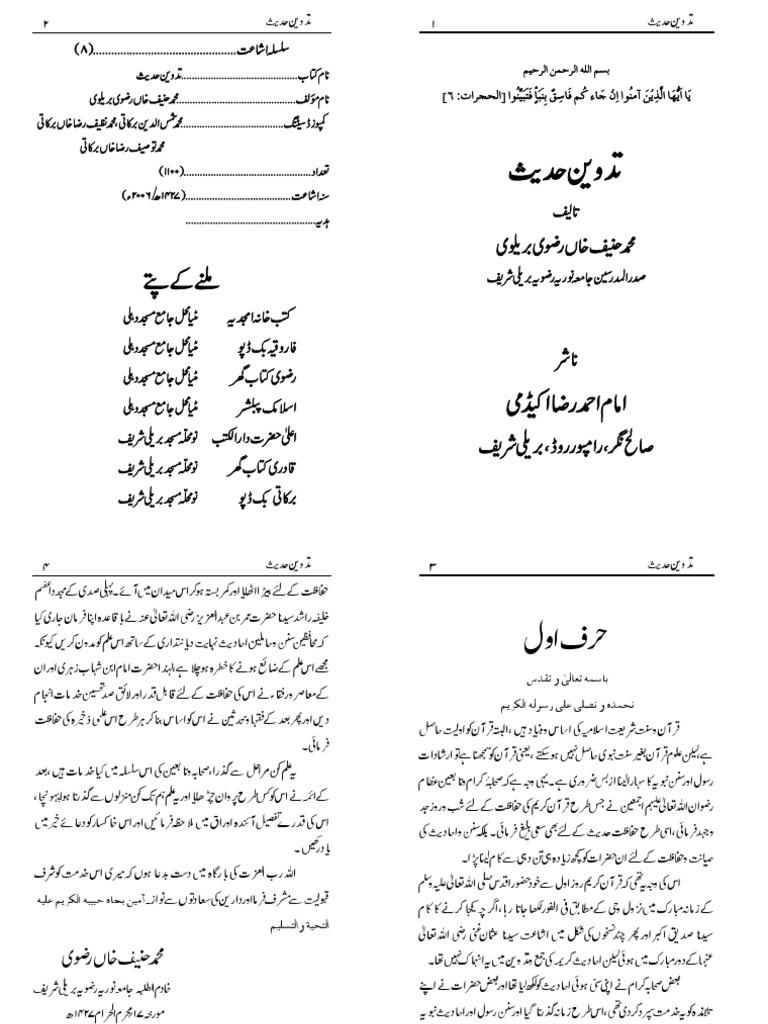 تدوین حدیث ۱
بسم الله الرحمن الرحیم
یَا اَیُّهَا الَّذِیْنَ آمَنُوا اِنْ جَاءَ كُم فَاسِقٌ بِنَبَإٍ فَتَبَیَّنُوا [الحجرات: ٦]
تدوین حدیث
تالیف
محمد حنیف خاں رضوی بریلوی
صدر المدرسین جامعہ نوریہ رضویہ بریلی شریف
ناشر
امام احمد رضا اکیڈمی
صالح نگر، رامپور روڈ، بریلی شریف
تدوین حدیث ۲
سلسلہ اشاعت.......................................(۸)
نام کتاب.......................................تدوین حدیث
نام مؤلف.......................................محمد حنیف خاں رضوی بریلوی
کمپوزڈ سیٹنگ.......................................محمد شمس الدین برکاتی، محمد نظیف رضا خاں برکاتی
محمد توصیف رضا خاں برکاتی
تعداد.......................................(۱۱۰۰)
سنہ اشاعت.......................................(۱۴۲۷ھ/۲۰۰۶ء)
ہدیہ.......................................
ملنے کے پتے
کتب خانہ امجدیہ مٹیا محل جامع مسجد دہلی
فاروقیہ بک ڈپو مٹیا محل جامع مسجد دہلی
رضوی کتاب گھر مٹیا محل جامع مسجد دہلی
اسلامک پبلشر مٹیا محل جامع مسجد دہلی
اعلیٰ حضرت دار الکتب نو محلّہ مسجد بریلی شریف
قادری کتاب گھر نو محلّہ مسجد بریلی شریف
برکاتی بک ڈپو نو محلّہ مسجد بریلی شریف
تدوین حدیث ۳
حرف اول
باسمه تعالیٰ و تقدس
نحمده و نصلی علی رسوله الکریم
قرآن و سنت شریعت اسلامیہ کی اساس و بنیاد ہیں، البتہ قرآن کو اولیت حاصل
ہے، لیکن علوم قرآن بغیر سنت نبوی حاصل نہیں ہو سکتے، یعنی قرآن کو سمجھنا ہے تو ارشادات
رسول اور سنن نبویہ کا سہارا لینا از بس ضروری ہے۔ یہی وجہ ہے کہ صحابۂ کرام و تابعین عظام
رضوان اللہ تعالیٰ علیہم اجمعین نے جس طرح قرآن کریم کی حفاظت کے لئے شب و روز جد
وجہد فرمائی، اسی طرح حفاظت حدیث کے لئے بھی سعی بلیغ فرمائی۔ بلکہ سنن و احادیث کی
صیانت و حفاظت کے لئے ان حضرات کو کچھ زیادہ ہی تن دہی سے کام لینا پڑا۔
اس کی وجہ یہ تھی کہ قرآن کریم روز اول سے خود حضور اقدس صلی اللہ تعالیٰ علیہ وسلم
کے زمانہ مبارک میں نزول وحی کے مطابق فی الفور لکھا جاتا رہا، اگر چہ یکجا کرنے کا کام
سیدنا صدیق اکبر اور پھر چند نسخوں کی شکل میں اشاعت سیدنا عثمان غنی رضی اللہ تعالیٰ
عنہما کے دور مبارک میں ہوئی لیکن احادیث کریمہ کی جمع و تدوین میں یہ انہماک نہیں تھا۔
بعض صحابہ کرام نے اپنی سنی ہوئی احادیث کو لکھ لیا تھا اور بعض حضرات نے اپنے
تلامذہ کو یہ خدمت سپرد کر دی تھی، اس طرح زمانہ گذرتا گیا اور سنن رسول اور احادیث نبویہ
تدوین حدیث ۴
حفاظت کے لئے بیڑا اٹھایا اور کمر بستہ ہو کر اس میدان میں آئے۔ پہلی صدی کے مجدد اعظم
خلیفہ راشد سیدنا حضرت عمر بن عبد العزیز رضی اللہ تعالیٰ عنہ نے باقاعدہ اپنا فرمان جاری کیا
کہ محافظین سنن و حاملین احادیث نہایت دیانتداری کے ساتھ اس علم کو مدون کریں کیونکہ
مجھے اس علم کے ضائع ہونے کا خطرہ ہو چلا ہے، لہٰذا حضرت امام ابن شہاب زہری اور ان
کے معاصر و رفقاء نے اس کی حفاظت کے لئے قابل قدر اور لائق صد تحسین خدمات انجام
دیں اور پھر بعد کے فقہا و محدثین نے اس کو اساس بنا کر ہر طرح اس علمی ذخیرہ کی حفاظت
فرمائی۔
یہ علم کن مراحل سے گذرا، صحابہ و تابعین کی اس سلسلہ میں کیا خدمات ہیں، بعد
کے ائمہ نے اس کو کس طرح پروان چڑھایا اور یہ علم ہم تک کن منزلوں سے گذرتا ہوا پہونچا،
اس کی قدرے تفصیل آئندہ اوراق میں ملاحظہ فرمائیں اور اس خاکسار کو دعائے خیر میں
یاد رکھیں۔
اللہ رب العزت کی بارگاہ میں دست بدعا ہوں کہ میری اس خدمت کو شرف
قبولیت سے مشرف فرما اور دارین کی سعادتوں سے نواز۔ آمین بجاه حبیبه الکریم علیه
التحیة و التسلیم
محمد حنیف خاں رضوی
خادم الطلبہ جامعہ نوریہ رضویہ بریلی شریف
مورخہ ۱۷؍محرم الحرام ۱۴۲۷ھ